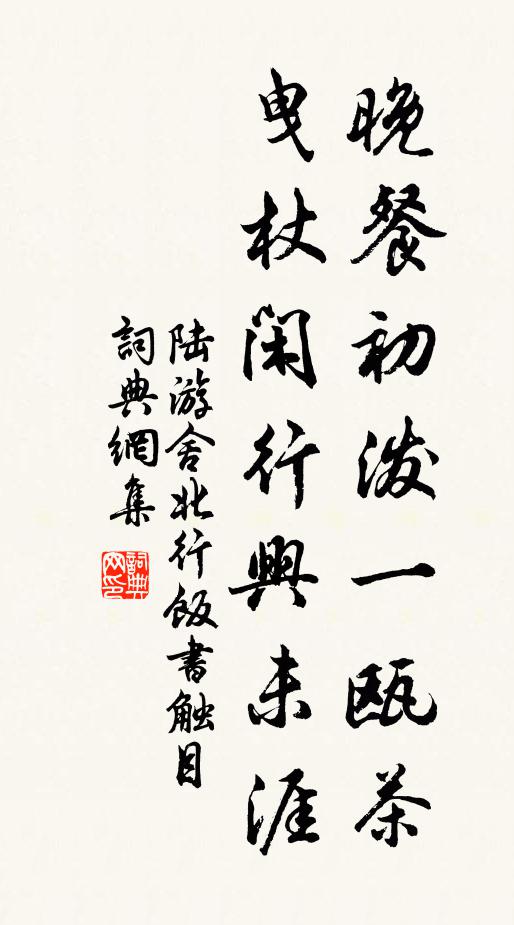 晚餐初泼一瓯茶
曳杖闲行興未涯
陆游舍北行饭書触目
詞典網集
詞典网印